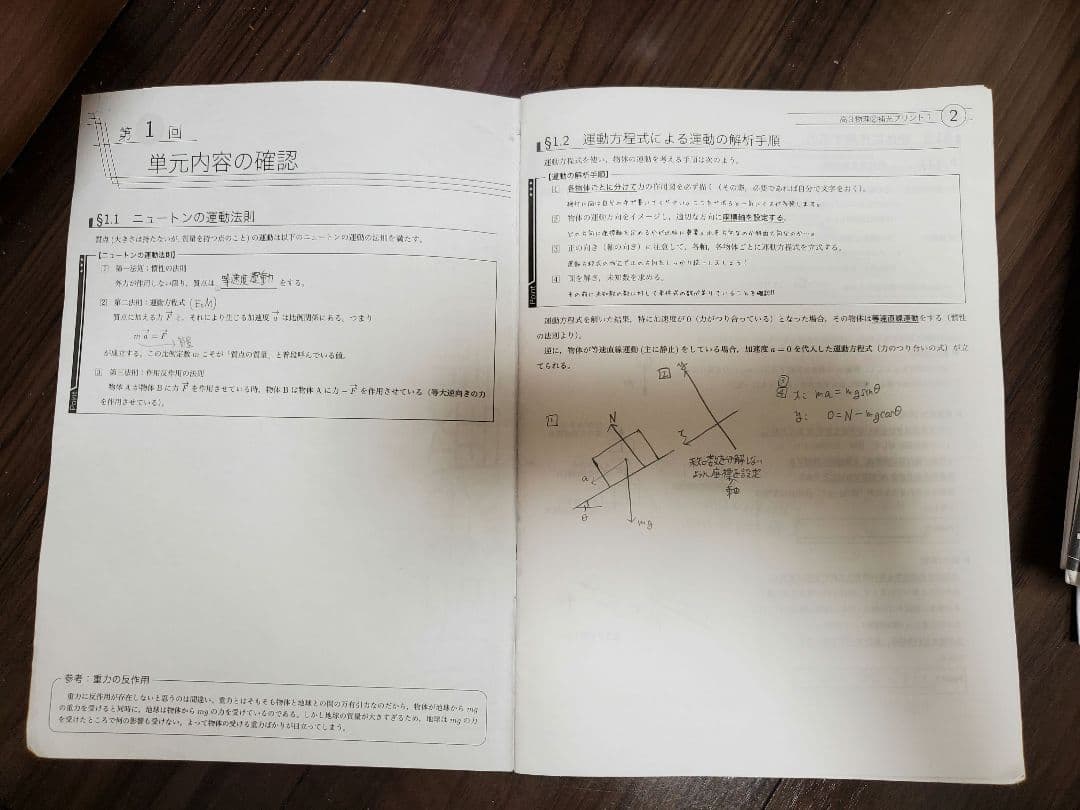 第 1 回
単元内容の確認
§1.1 ニュートンの運動法則
質点 (大きさは持たないが, 質量を持つ点のこと) の運動は以下のニュートンの運動の法則を満たす。
【ニュートンの運動法則】
[1] 第一法則：慣性の法則
外力が作用しない限り, 質点は 等速度運動 をする。
[2] 第二法則：運動方程式 (EoM)
質点に加える力 F と, それにより生じる加速度 a は比例関係にある。つまり
ma = F
が成立する。この比例定数 m こそが「質点の質量」と普段呼んでいる値。
[3] 第三法則：作用反作用の法則
物体 A が物体 B に力 F を作用させている時, 物体 B は物体 A に力 − F を作用させている（等大逆向きの力
を作用させている）。
Point
参考：重力の反作用
重力に反作用が存在しないと思うのは間違い。重力とはそもそも物体と地球との間の万有引力なのだから, 物体が地球から mg
の重力を受けると同時に, 地球は物体から mg の力を受けているのである。しかし地球の質量が大きすぎるため, 地球は mg の力
を受けたところで何の影響も受けない。よって物体の受ける重力ばかりが目立ってしまう。
高3物理②補充プリント1 2
§1.2 運動方程式による運動の解析手順
運動方程式を使い, 物体の運動を考える手順は次のよう。
【運動の解析手順】
[1] 各物体ごとに分けて力の作用図を必ず描く（その際, 必要であれば自分で文字をおく）。
[2] 物体の運動方向をイメージし, 適切な方向に座標軸を設定する。
[3] 正の向き（軸の向き）に注意して, 各軸, 各物体ごとに運動方程式を立式する。
運動方程式の右辺で正の方向をしっかり統一しましょう！
[4] 3を解き, 未知数を求める。
その前に未知数の数に対して方程式の数が足りていることを確認!!
Point
運動方程式を解いた結果, 特に加速度が 0（力がつり合っている）となった場合, その物体は等速直線運動をする（慣性
の法則より）。
逆に, 物体が等速直線運動 (主に静止) をしている場合, 加速度 a = 0 を代入した運動方程式（力のつり合いの式）が立
てられる。
1
N
a
θ
mg
2
y
x
座標を設定
軸
3
4
x: ma = mg sinθ
y: 0 = N − mg cosθ